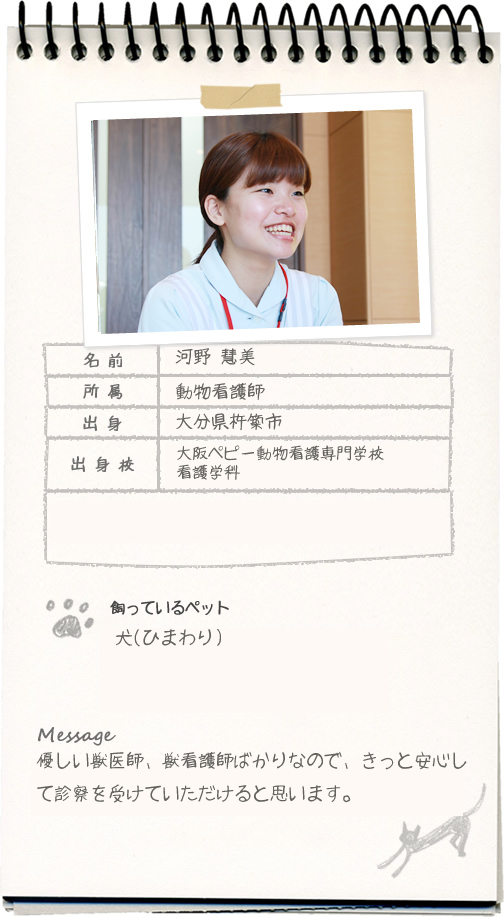 名前 河野 慧美
所属 動物看護師
出身 大分県杵築市
出身校 大阪ペピー動物看護専門学校
看護学科
飼っているペット
犬(ひまわり)
Message
優しい獣医師、獣看護師ばかりなので、きっと安心し
て診察を受けていただけると思います。